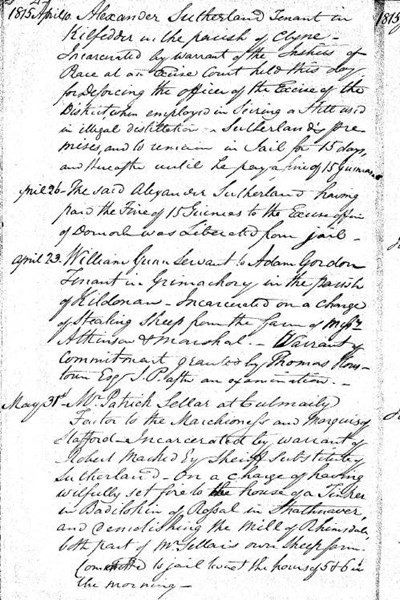 1815 April 10. Alexander Sutherland Tenant in
Kilfedder in the parish of Clyne -
Incarcerated by warrant of the Justices of
Peace at an Excise Court held this day
for deforcing the officer of the Excise of the
District when employed in Seizing a Still used
in illegal distillation - Sutherland's pre-
mises, and to remain in Jail for 15 days,
and thereafter until he pay a fine of 15 Guineas
April 26 - The said Alexander Sutherland having
paid the Fine of 15 Guineas to the Excise officer
of Dornoch was Liberated from jail -
April 23. William Gunn Servant to Adam Gordon
Tenant in Grimachory in the parish
of Kildonan - Incarcerated on a charge
of Stealing Sheep from the farm of Messrs
Atkinson & Marshal - Warrant of
Commitment granted by Thomas Hous-
town Esqr J.P. after an examination. -
May 31st - Mr Patrick Sellar at Culmaily
Factor to the Marchioness and Marquis of
Stafford - Incarcerated by warrant of
Robert Mackid Esqr Sheriff Substitute of
Sutherland - On a charge of having
wilfully set fire to the house of a Tinker
in Badilchin of Rossal in Strathnaver
and demolishing the Mill of Rhimsdale,
both part of Mr Sellar's own Sheep farm.
Committed to jail the hours of 5 & 6 in
the morning -
1815